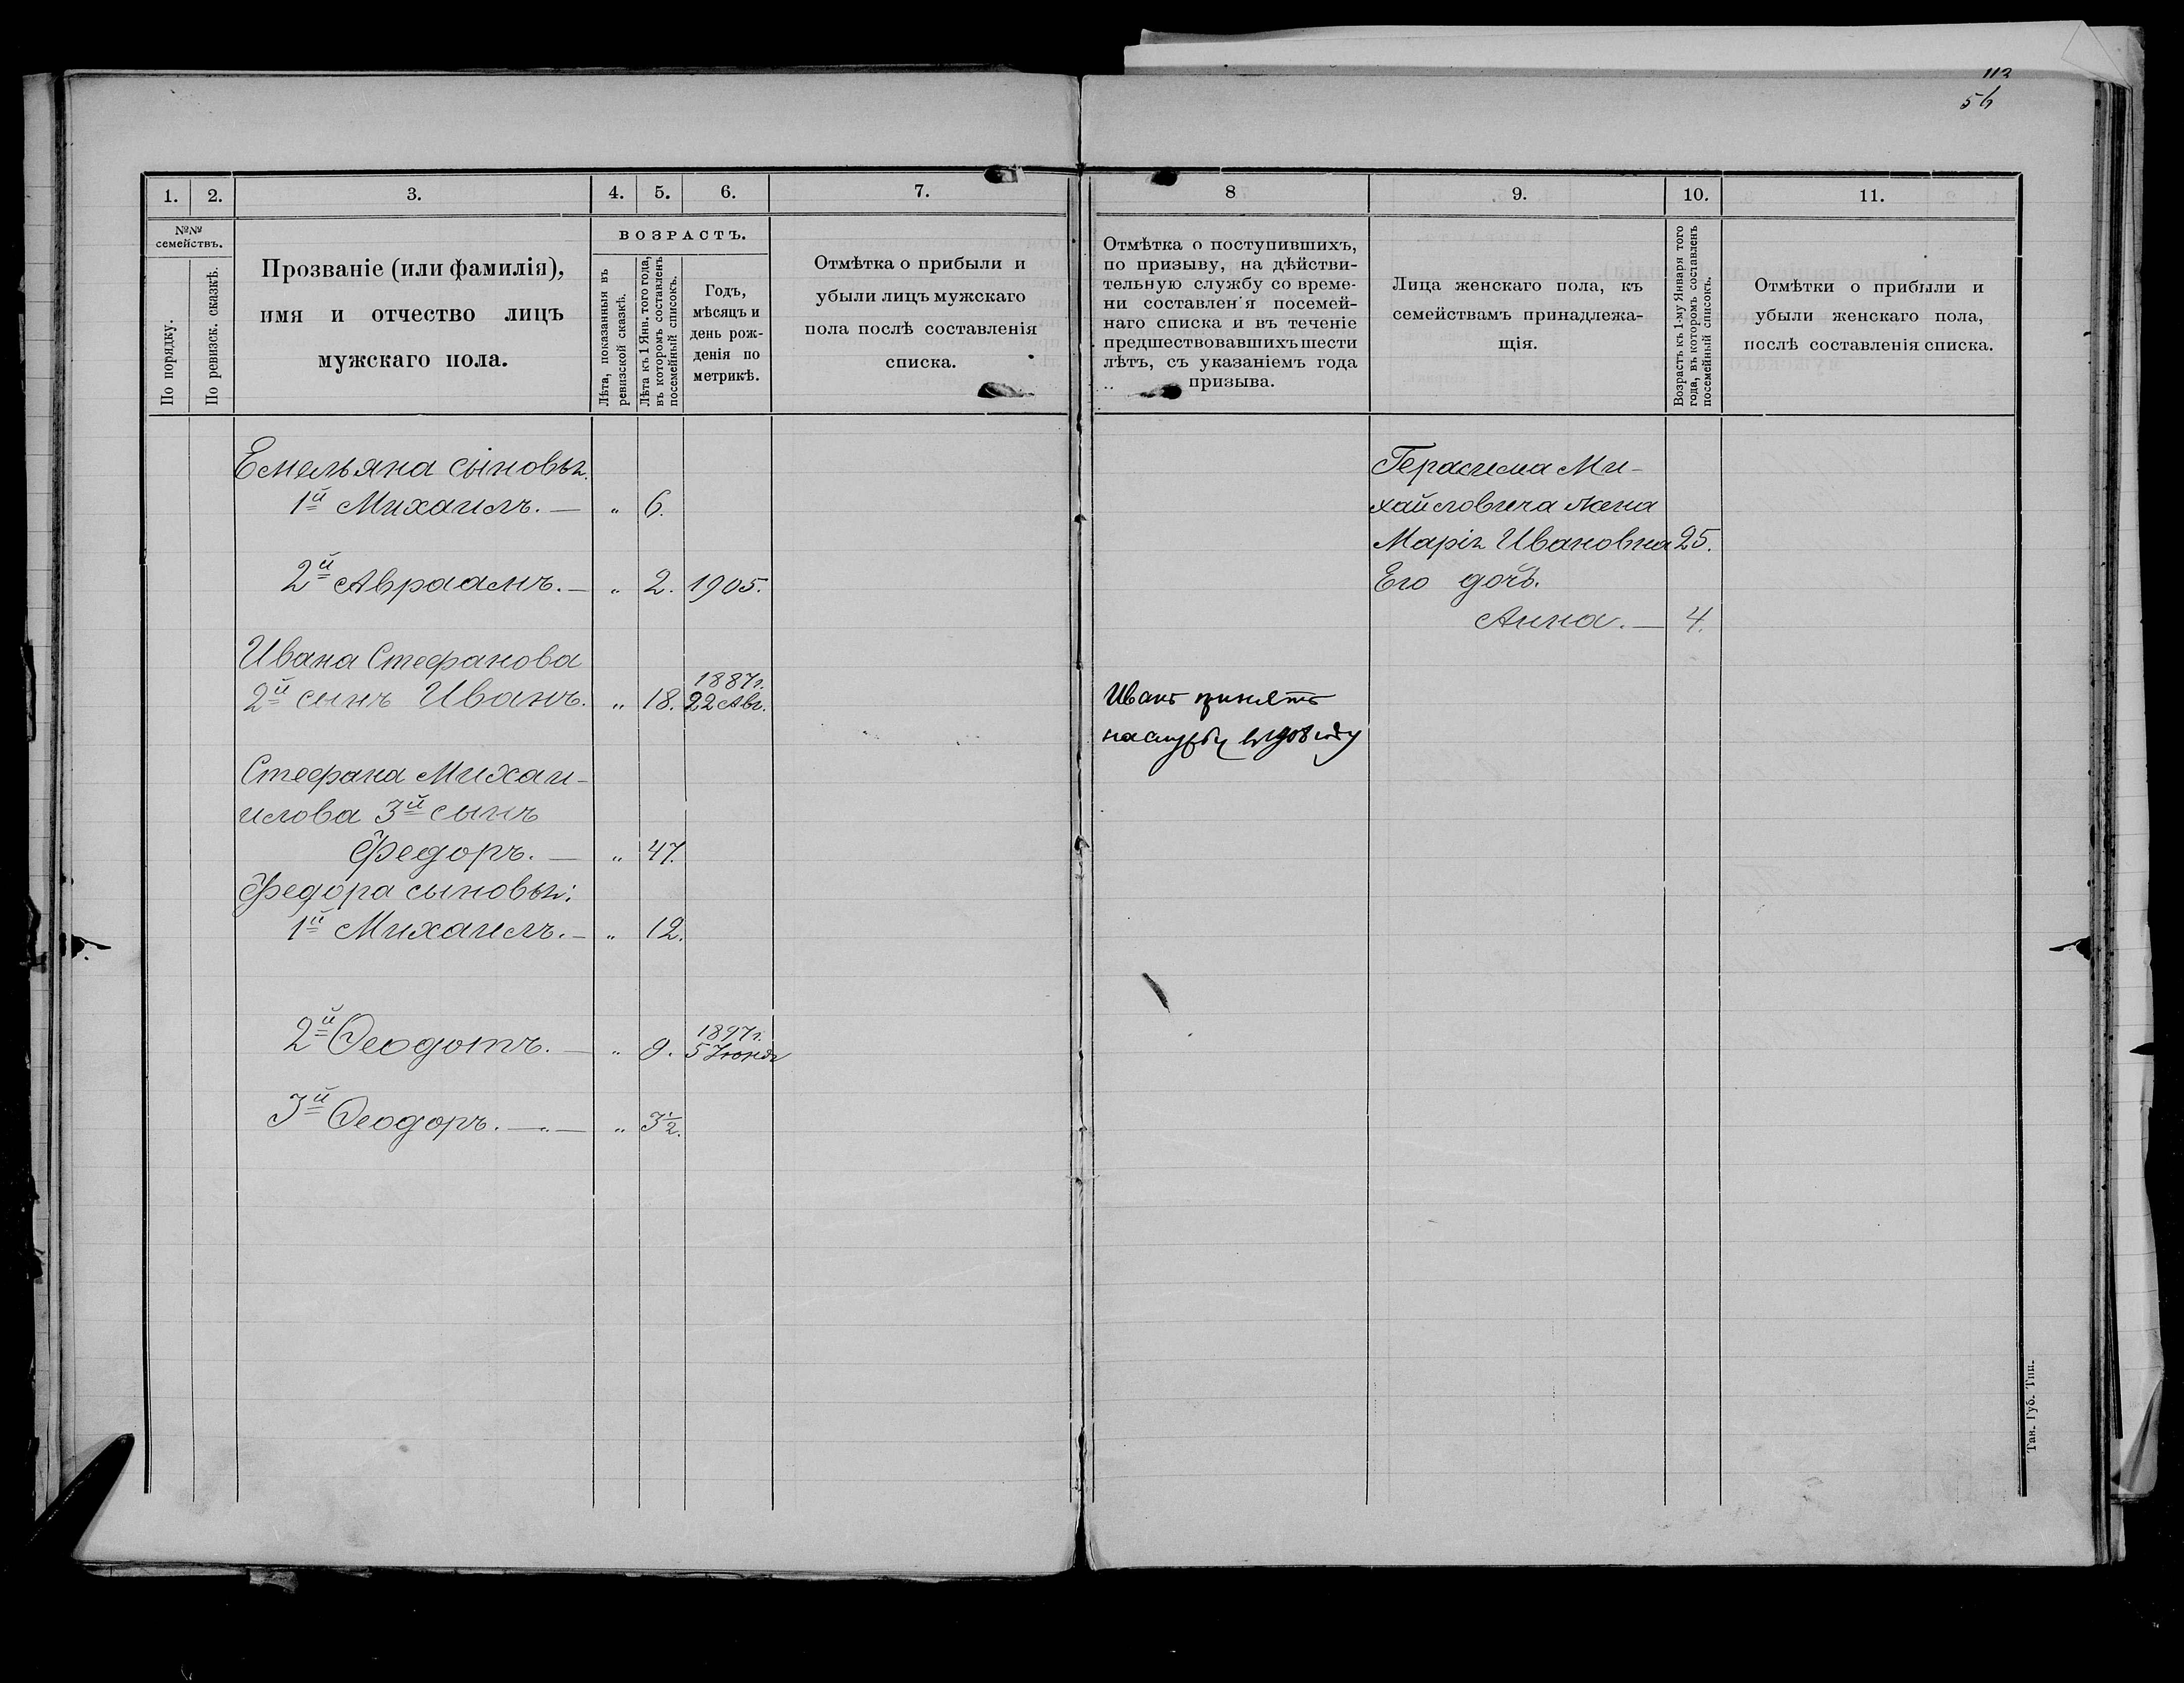 113
56
1. 2. 3. 4. 5. 6. 7.
№№ семействъ.
По порядку.
По ревизск. сказкѣ.
Прозваніе (или фамилія),
имя и отчество лицъ
мужскаго пола.
ВОЗРАСТЪ.
Лѣта, показанныя въ
ревизской сказкѣ.
Лѣта къ 1 Янв. того года,
въ которомъ составленъ
посемейный списокъ.
Годъ,
мѣсяцъ и
день рож-
денія по
метрикѣ.
Отмѣтка о прибыли и
убыли лицъ мужскаго
пола послѣ составленія
списка.
Емельяна сыновья.
1й Михаилъ. — „ 6.
2й Авраамъ. — „ 2. 1905.
Ивана Стефанова
1887г.
2й сынъ Иванъ. „ 18. 22 Авг.
Стефана Михаи-
илова 3й сынъ
Федоръ. — „ 47.
Федора сыновья:
1й Михаилъ. — „ 12.
1897г.
2й Ѳеодотъ. — „ 9. 5 Іюня
3й Ѳеодоръ. — „ — „ 3½.
8 9. 10. 11.
Отмѣтка о поступившихъ,
по призыву, на дѣйстви-
тельную службу со време-
ни составленія посемей-
наго списка и въ теченіе
предшествовавшихъ шести
лѣтъ, съ указаніемъ года
призыва.
Лица женскаго пола, къ
семействамъ принадлежа-
щія.
Возрастъ къ 1-му Января того
года, въ которомъ составленъ
посемейный списокъ.
Отмѣтки о прибыли и
убыли женскаго пола,
послѣ составленія списка.
Герасима Ми-
хайловича жена
Марія Ивановна 25.
Его дочь.
Анна. — 4.
Иванъ принятъ
на службу въ 1908 году
Тав. Губ. Тип.